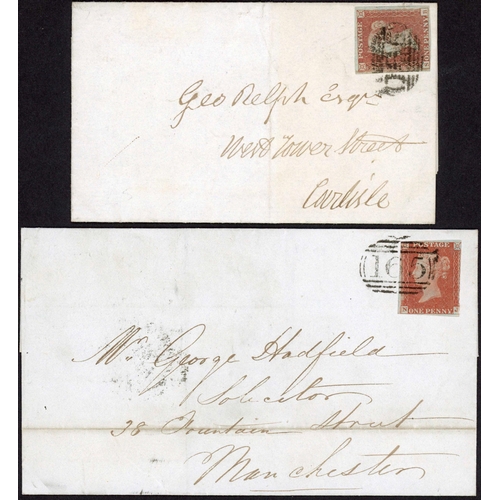 POSTAGE
ONE PENNY
Geo Relph Esqre
West Tower Street
Carlisle
POSTAGE
165
ONE PENNY
Mr George Hadfield
Solicitor
38 Fountain Street
Manchester